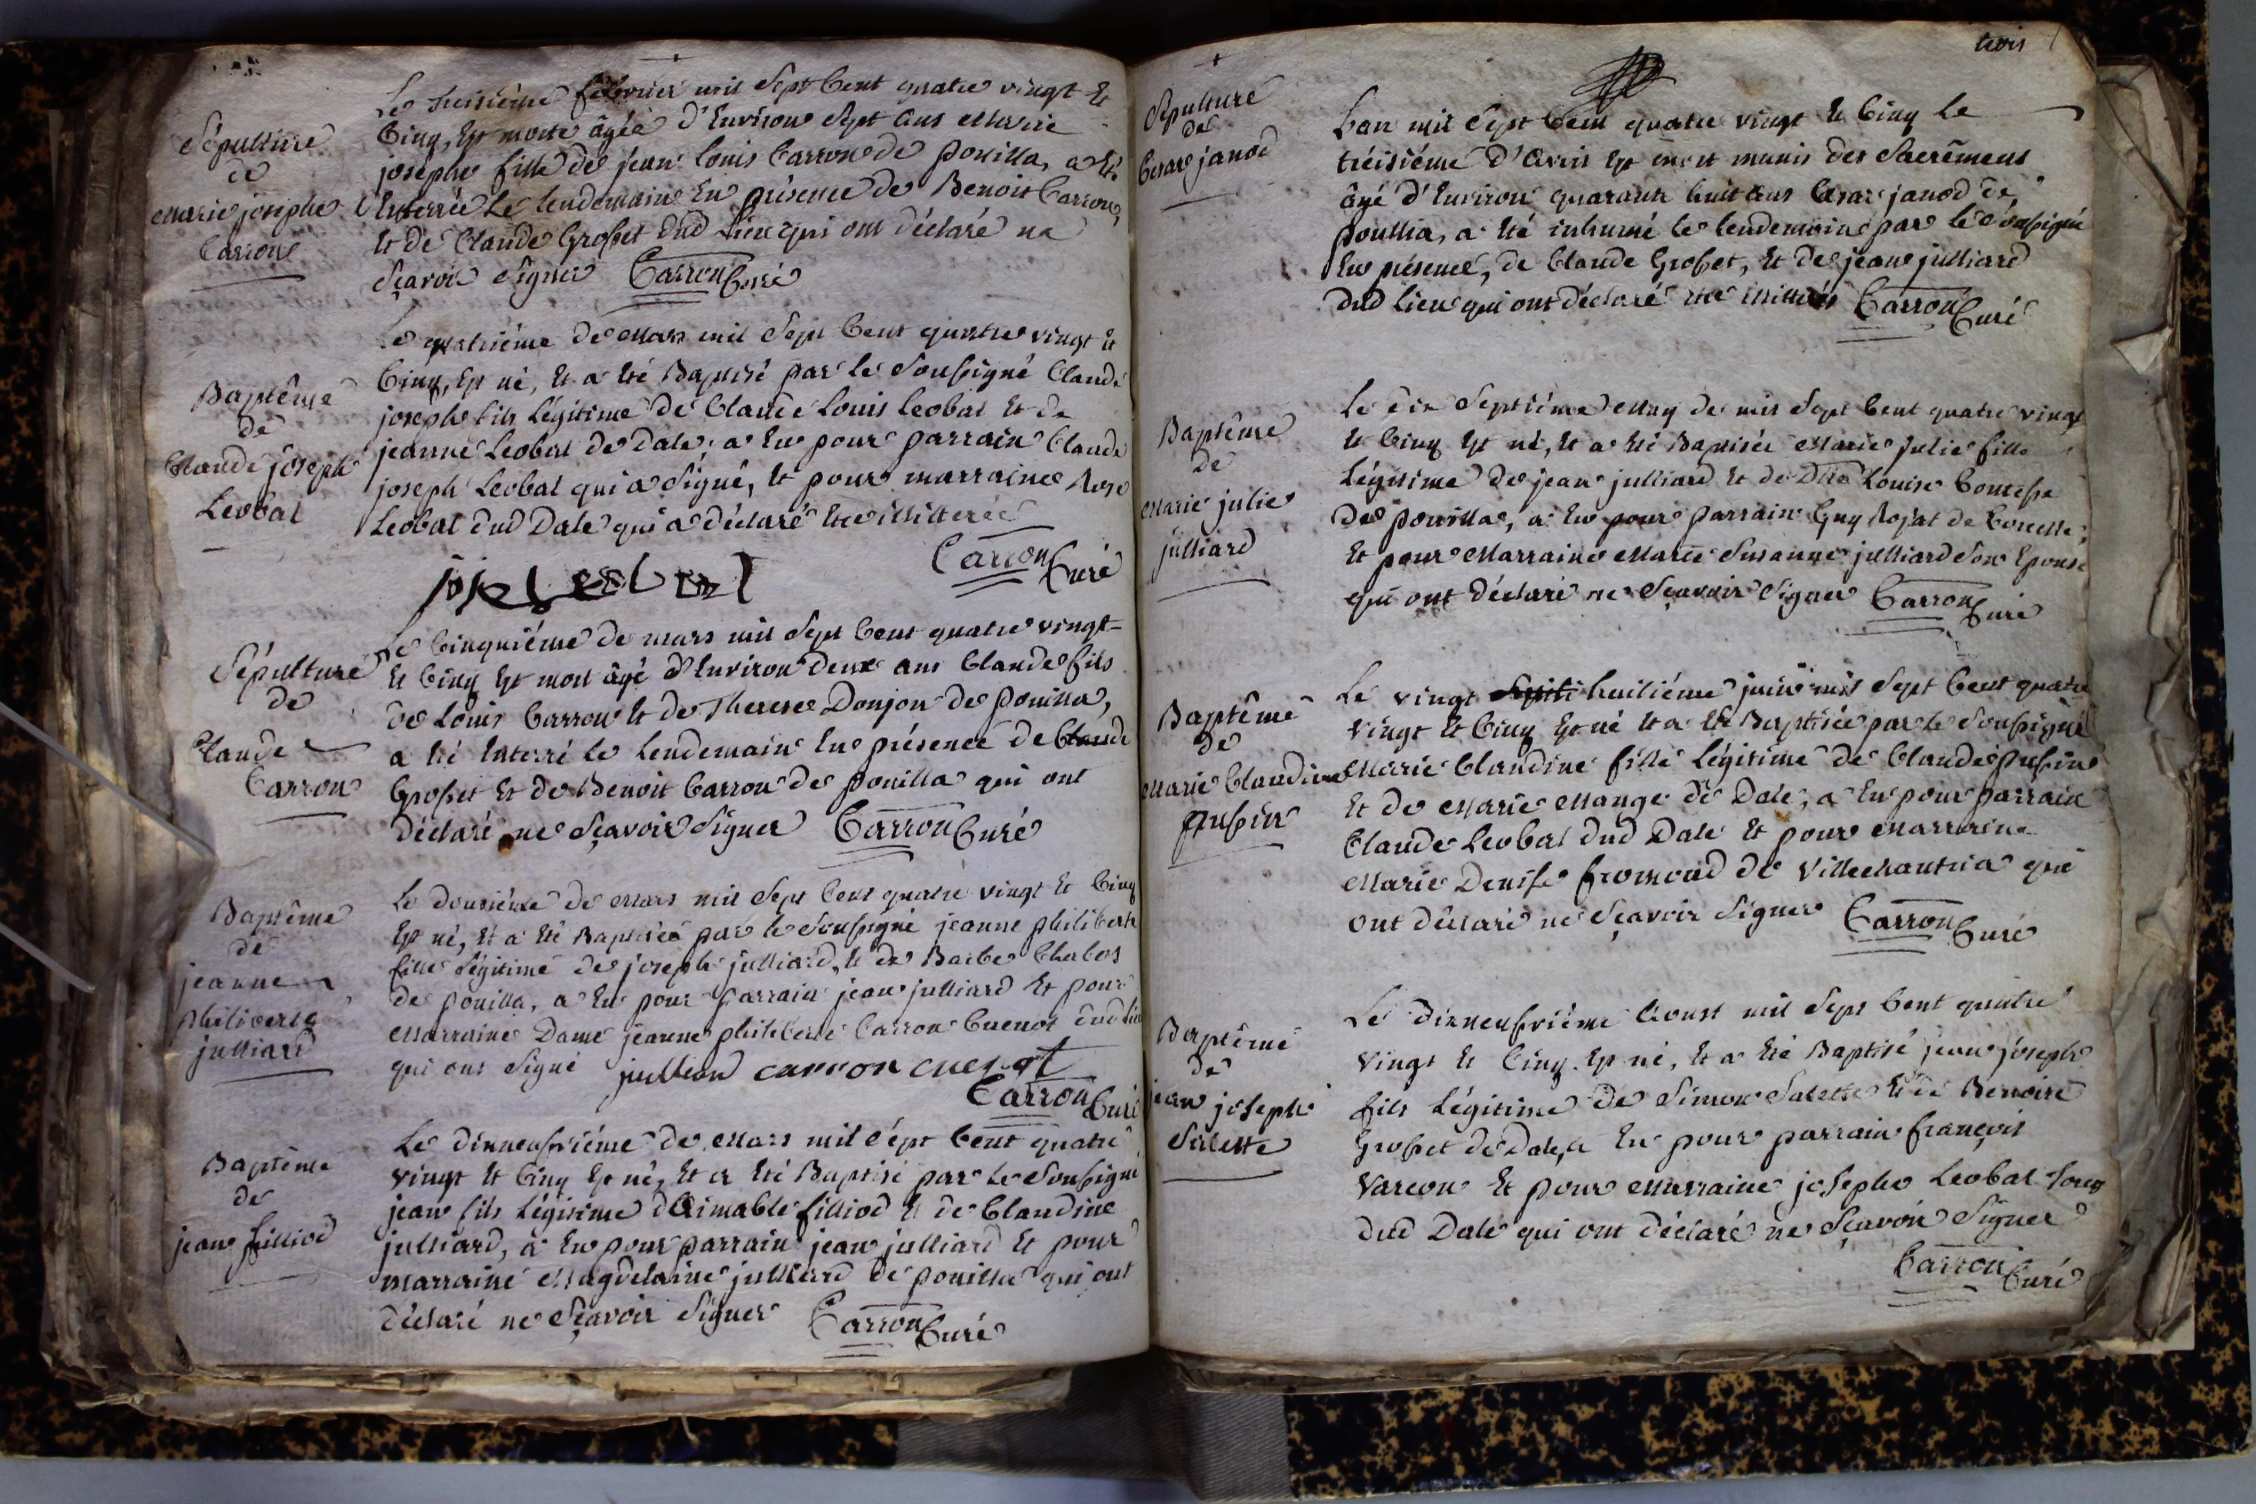 Sépulture
de
Marie josephe
Carron
Le treisiéme février mil Sept Cent quatre vingt Et
Cinq, Est morte âgée d'Environ Sept ans Marie
josephe fille de jean Louis Carron de pouilla, a Eté
Enterrée Le lendemain En présence de Benoit Carron,
Et de Claude Grosset dud Lieu qui ont déclaré ne
Sçavoir Signer Carron Curé
Baptême
de
Claude joseph
Leobal
Le quatriéme de Mars mil Sept Cent quatre vingt Et
Cinq, Est né, Et a Eté Baptisé par le Soussigné Claude
joseph fils Légitime de Claude Louis Leobal Et de
jeanne Leobal de Dale, a Eu pour parrain Claude
joseph Leobal qui a Signé, Et pour marraine Rose
Leobal dud Dale qui a déclaré Etre illitterée
Carron Curé
Sépulture
de
Claude
Carron
Le Cinquiéme de mars mil Sept Cent quatre vingt
Et Cinq Est mort âgé d'Environ deux ans Claude fils
de Louis Carron Et de Therese Donjon de pouilla,
a Eté Enterré le Lendemain En présence de Claude
Grosset Et de Benoit Carron de pouilla qui ont
déclaré ne Sçavoir Signer Carron Curé
Baptême
de
jeanne
philiberte
julliard
Le douziéme de Mars mil Sept Cent quatre vingt Et Cinq
Est né, Et a Eté Baptisée par le Soussigné jeanne philiberte
fille Légitime de joseph julliard, Et de Barbe Chabos
de pouilla, a Eu pour parrain jean julliard Et pour
Marraine Dame jeanne philiberte Carron Cuenot dud Lieu
qui ont Signé julliard carron cuenot
Carron Curé
Baptême
de
jean filliod
Le dixneufviéme de Mars mil Sept Cent quatre
vingt Et Cinq Est né, Et a Eté Baptisé par le Soussigné
jean fils Légitime d'Aimable filliod Et de Claudine
julliard, a Eu pour parrain jean julliard Et pour
marraine Magdelaine julliard de pouilla qui ont
déclaré ne Sçavoir Signer Carron Curé
trois
Sépulture
de
Cesar janod
L'an mil Sept Cent quatre vingt Et Cinq Le
tréisiéme d'Avril Est mort munis des Sacrêmens
âgé d'Environ quarante huit ans Cesar janod de
pouillia, a Eté inhumé le lendemain par le Soussigné
En présence, de Claude Grosset, Et de jean julliard
dud Lieu qui ont déclaré Etre illitterés Carron Curé
Baptême
de
Marie julie
julliard
Le dix Septiéme May de mil Sept Cent quatre vingt
Et Cinq Est né, Et a Eté Baptisée Marie Julie fille
Légitime de jean julliard Et de Louise Comtesse
de pouilla, a Eu pour parrain Guy Rojat de
Et pour Marraine Marie Susanne julliard Son Epouse
qui ont déclaré ne Sçavoir Signer Carron Curé
Baptême
de
Marie Claudine
pussin
Le vingt huitiéme juin mil Sept Cent quatre
vingt Et Cinq Est né Et a Eté Baptisée par le Soussigné
Marie Claudine fille Légitime de Claude pussin
Et de Marie Mange de Dale, a Eu pour parrain
Claude Leobal dud Dale Et pour Marraine
Marie Denise fromond de Villechantria qui
ont déclaré ne Sçavoir Signer Carron Curé
Baptême
de
jean joseph
Salette
Le dixneufviéme Aoust mil Sept Cent quatre
vingt Et Cinq Est né, Et a Eté Baptisé jean joseph
fils Légitime de Simon Salette Et de Benoite
Grosset de Dale, a Eu pour parrain françois
Varcon Et pour Marraine josephe Leobal tous
dud Dale qui ont déclaré ne Sçavoir Signer
Carron Curé